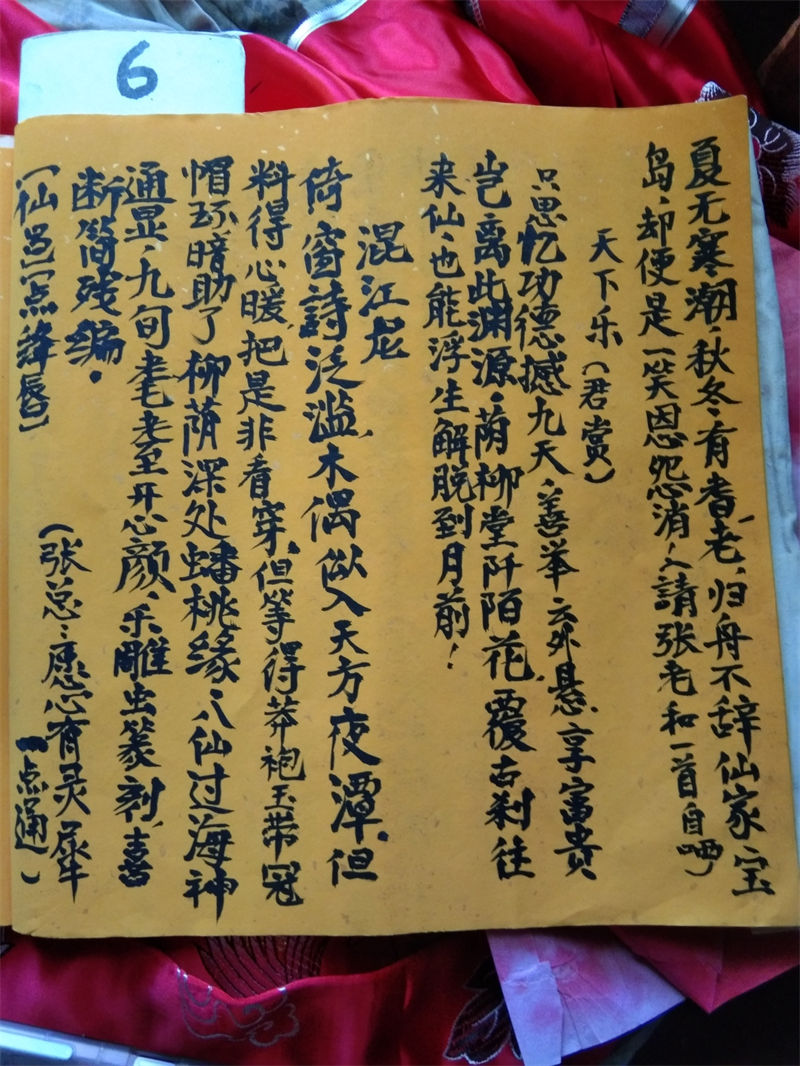 6
夏无寒潮、秋冬有耆老，归舟不辞仙家宝
岛，却便是一笑恩怨消，(請张老和一首自哂)
天下乐(君赏)
只思忆功德撼九天，善举云外悬，享富贵
岂离此渊源，荫柳堂阡陌花，覆古刹往
来仙，也能浮生解脱到月前！
混江龙
倚窗詩泛滥，木偶做入天方夜潭，但
料得心暖，把是非看穿，但等得莽袍玉带冠
帽环暗助了柳荫深处蟠桃缘，八仙过海神
通显，九旬耄耋至开心颜，乐雕虫篆刻，喜
断简残编。
〔仙邑〕〔点绛唇〕
(张总：愿心有灵犀
一点通)